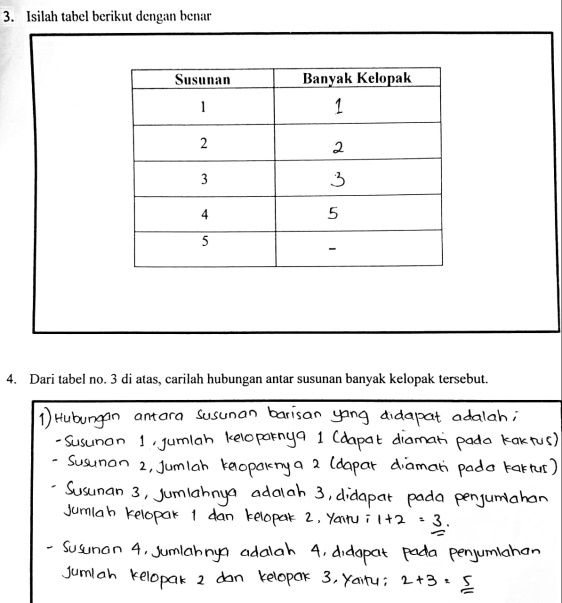 3. Isilah tabel berikut dengan benar
Susunan Banyak Kelopak
1 1
2 2
3 3
4 5
5 -
4. Dari tabel no. 3 di atas, carilah hubungan antar susunan banyak kelopak tersebut.
1) Hubungan antara susunan barisan yang didapat adalah ;
- Susunan 1 , jumlah kelopaknya 1 (dapat diamati pada kaktus)
- Susunan 2, Jumlah kelopaknya 2 (dapat diamati pada kaktus)
- Susunan 3, Jumlahnya adalah 3, didapat pada penjumlahan
Jumlah kelopak 1 dan kelopak 2, yaitu ; 1+2 = 3.
- Susunan 4, Jumlahnya adalah 4, didapat pada penjumlahan
Jumlah kelopak 2 dan kelopak 3, yaitu ; 2+3 = 5